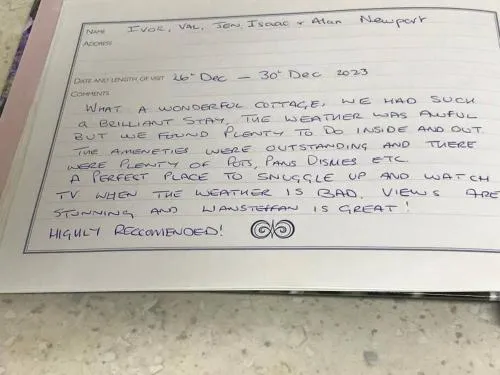 NAME IVOR, VAL, JEN, ISAAC + Alan Newport
ADDRESS
DATE AND LENGTH OF VISIT 26th Dec — 30th Dec 2023
COMMENTS
WHAT A WONDERFUL COTTAGE, WE HAD SUCH
a BRILLIANT STAY, THE WEATHER WAS AWFUL
BUT WE FOUND PLENTY TO DO INSIDE AND OUT.
THE AMENETIES WERE OUTSTANDING AND THERE
WERE PLENTY OF POTS, PANS DISHES ETC.
A PERFECT PLACE TO SNUGGLE UP AND WATCH
TV WHEN THE WEATHER IS BAD. VIEWS ARE
STUNNING AND LLANSTEFFAN IS GREAT!
HIGHLY RECCOMENDED!